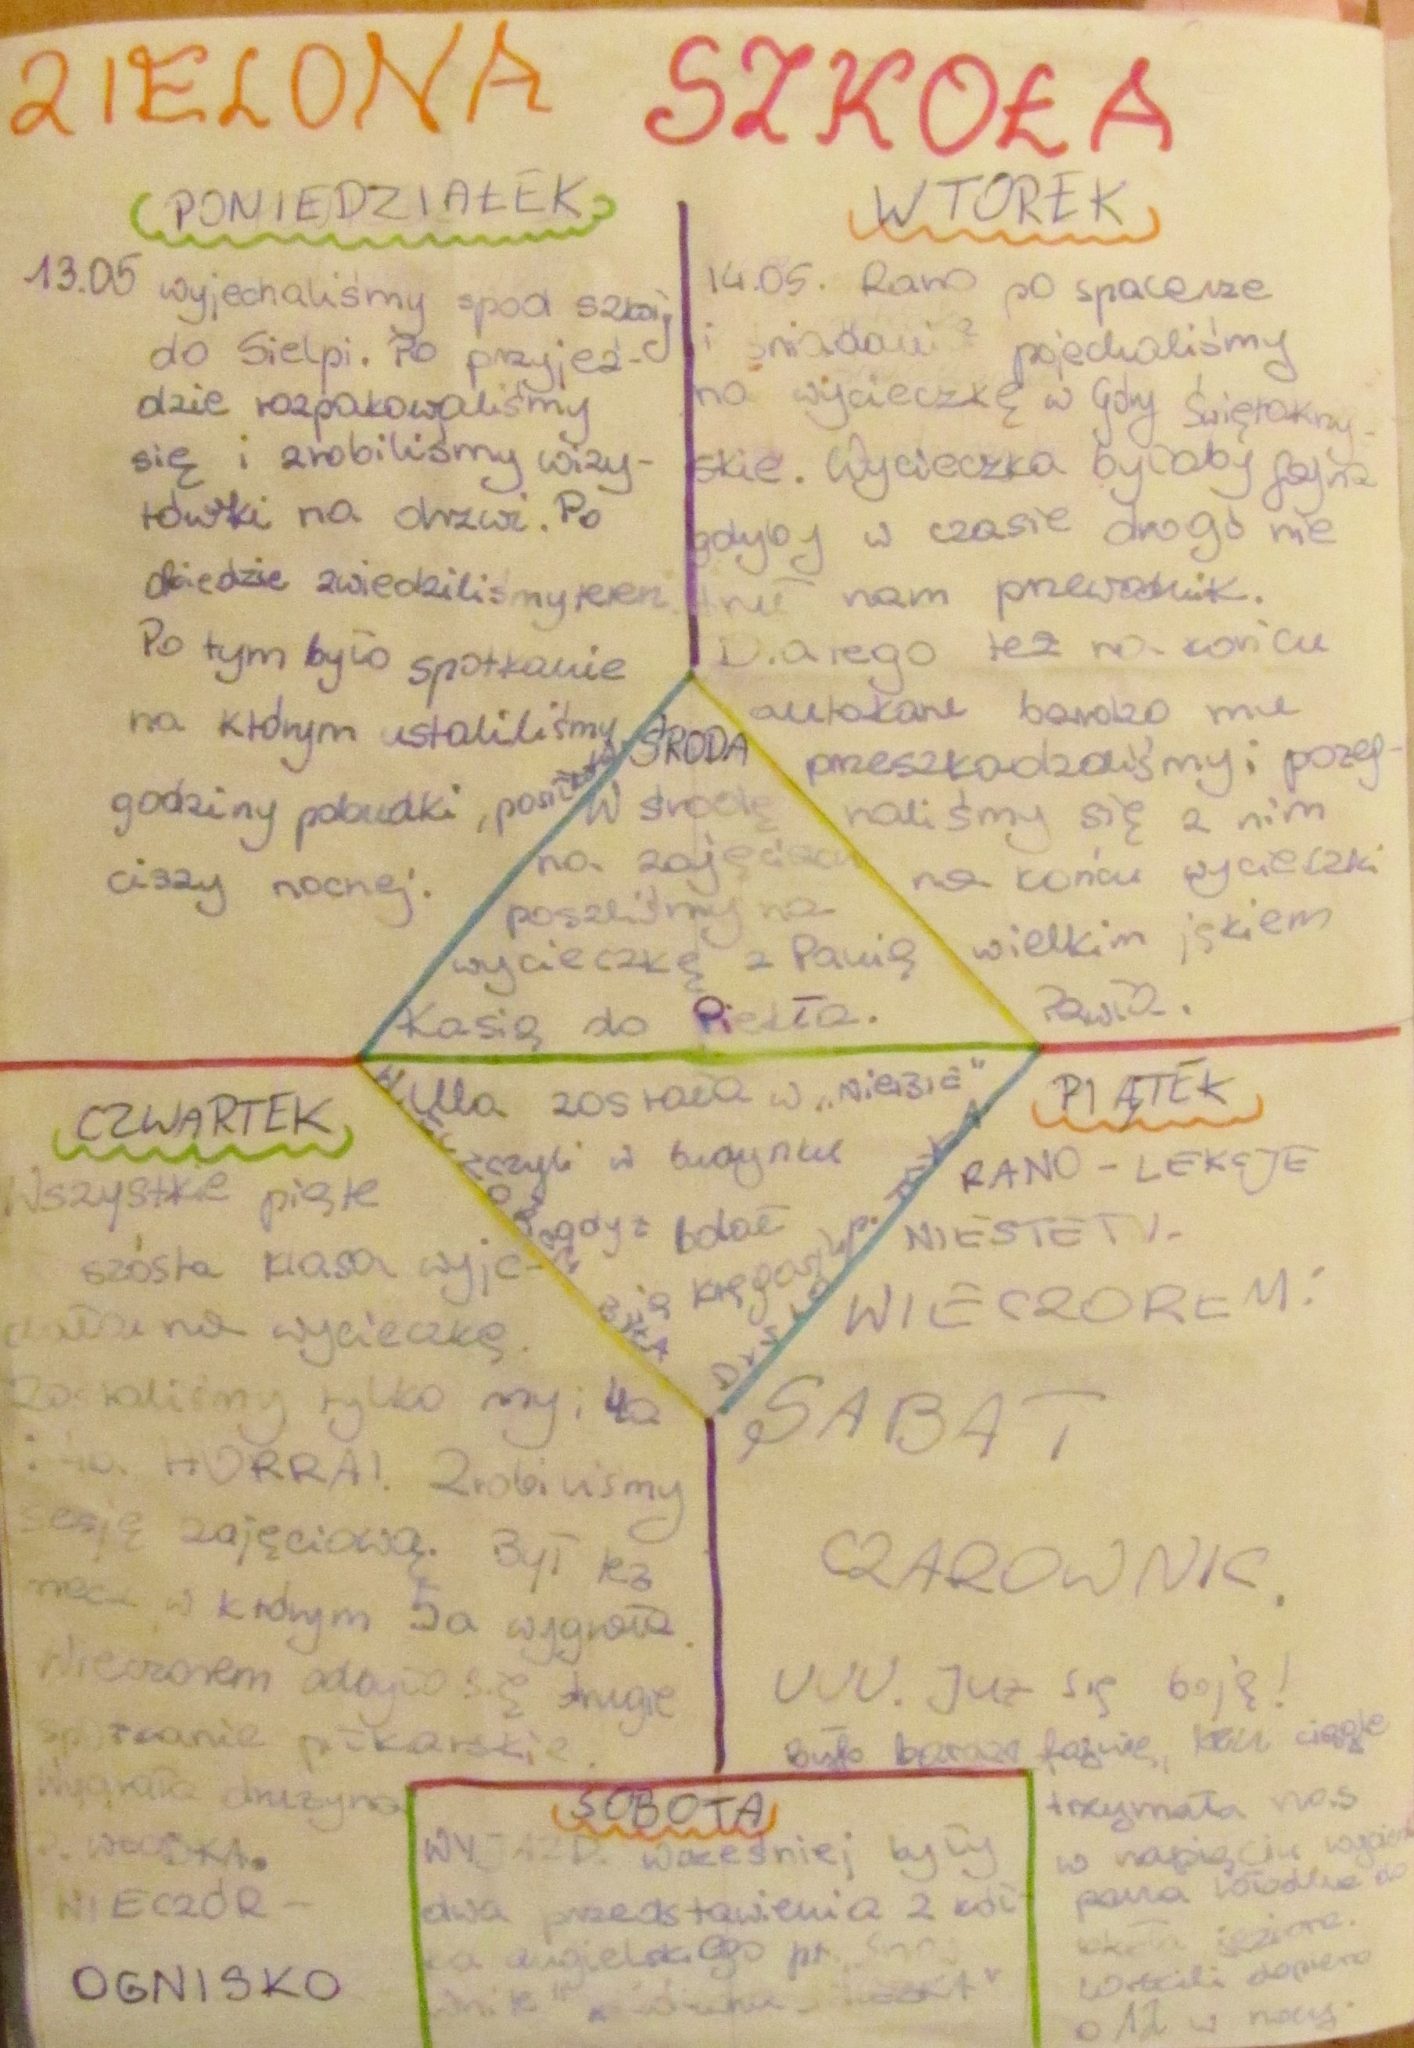 ZIELONA SZKOŁA
PONIEDZIAŁEK
13.05 wyjechaliśmy spod szkoły
do Sielpi. Po przyjeź-
dzie rozpakowaliśmy
się i zrobiliśmy wizy-
tówki na drzwi. Po
obiedzie zwiedziliśmy teren.
Po tym było spotkanie
na którym ustaliliśmy
godziny pobudki, posiłków
ciszy nocnej.
WTOREK
14.05. Rano po spacerze
i śniadaniu pojechaliśmy
na wycieczkę w Góry Świętokrzy-
skie. Wycieczka byłaby fajna
gdyby w czasie drogi nie
truł nam przewodnik.
Dlatego też na końcu
autokaru bardzo mu
przeszkadzaliśmy i pożeg-
naliśmy się z nim
na końcu wycieczki
wielkim jękiem
ŚRODA
W środę
na zajęciach
poszliśmy na
wycieczkę z Panią
Kasią do Piekła.
Ula została w „NIEBIE"
czyli w budynku
gdyż bolał
ją kręgosłup.
WIECZOREM BYŁA DYSKOTEKA
CZWARTEK
Wszystkie piąte
szósta klasa wyje-
chała na wycieczkę.
Zostaliśmy tylko my i 4a
HURRA!. Zrobiliśmy
sesję zajęciową. Był też
mecz w którym 5a wygrała.
Wieczorem odbyło się drugie
spotkanie piłkarskie.
Wygrała drużyna
WIECZÓR -
OGNISKO
PIĄTEK
RANO - LEKCJE
NIESTETY.
WIECZOREM:
SABAT
CZAROWNIC.
UUU. Już się boję!
Było bardzo fajnie, ciągle
trzymała nas
w napięciu
pana do
jeziora.
Wrócili dopiero
o 12 w nocy.
SOBOTA
WYJAZD. Wcześniej były
dwa przedstawienia z kół-
ka angielskiego pt.